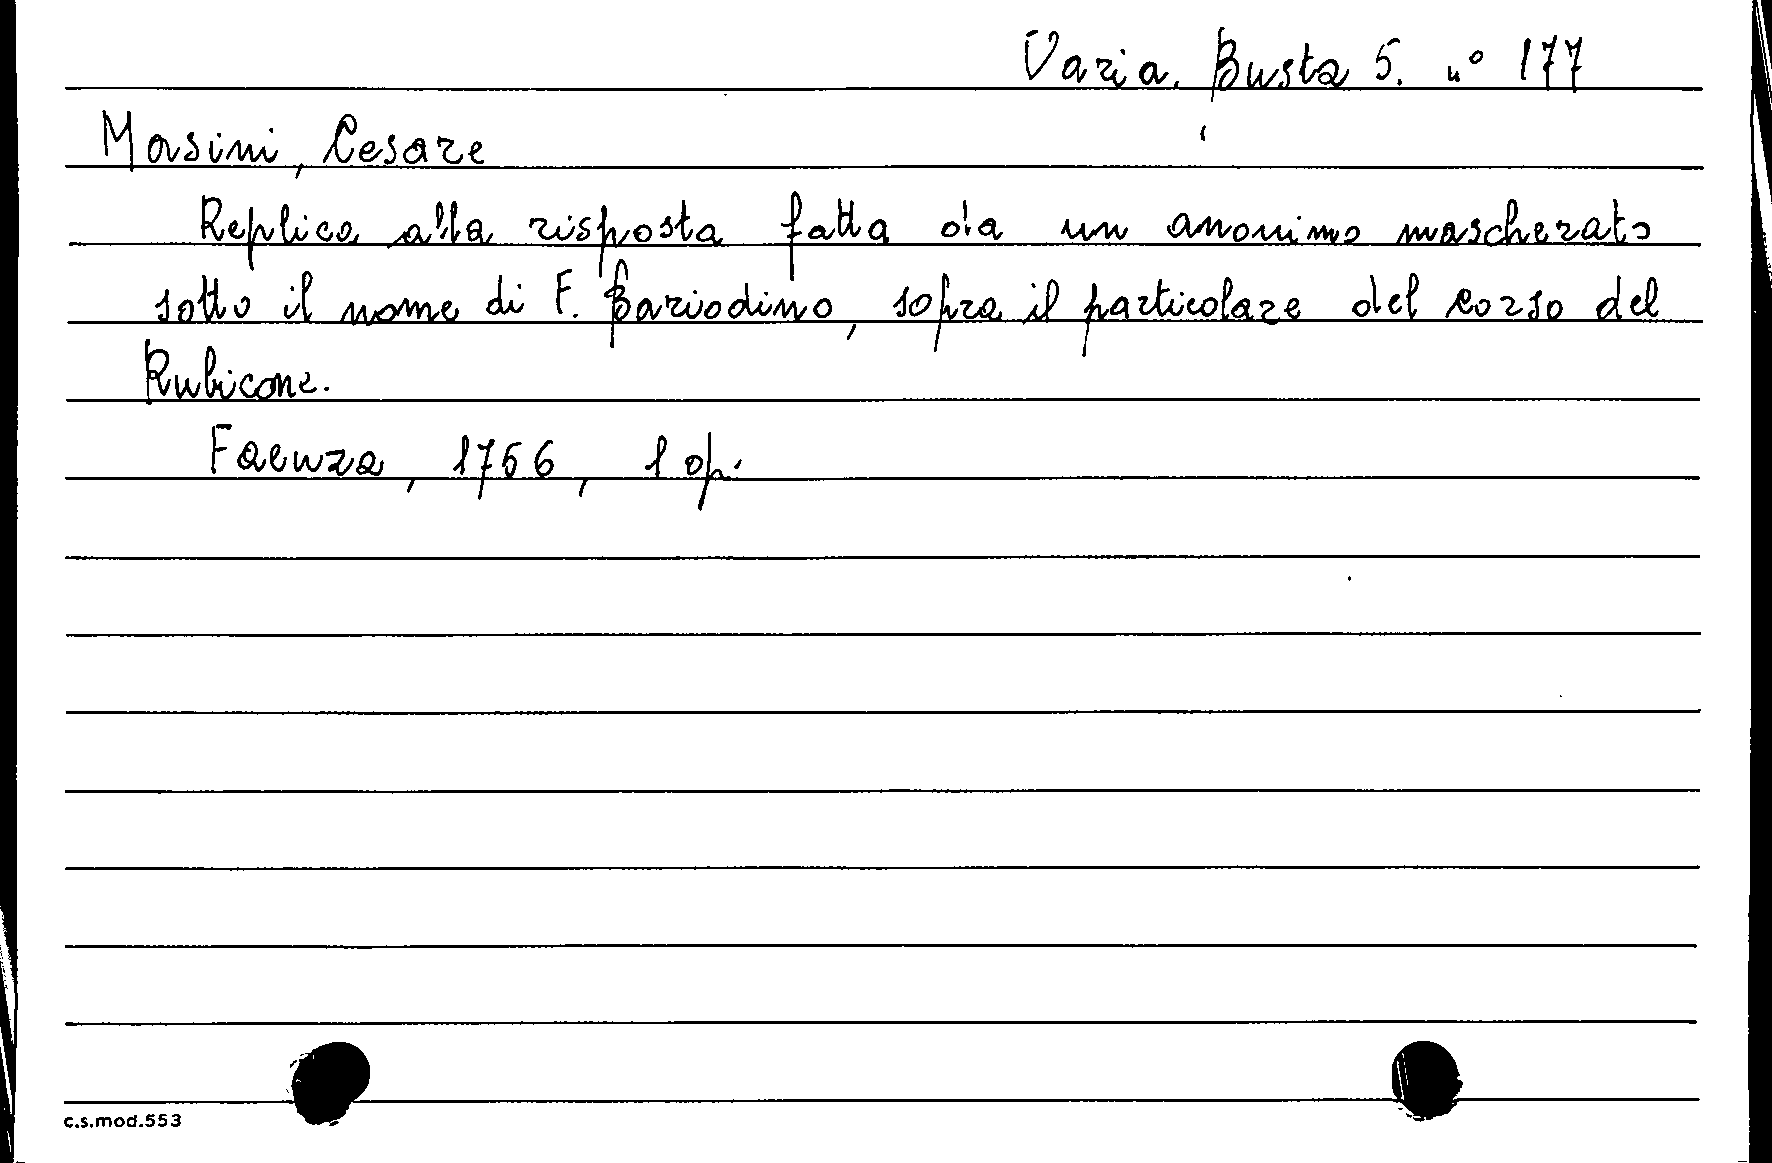 Varia. Busta 5. n° 177
Masini, Cesare
Replica alla risposta fatta da un anonimo mascherato
sotto il nome di F. Bariodino, sopra il particolare del corso del
Rubicone.
Faenza, 1756, 1 op.
c.s.mod.553